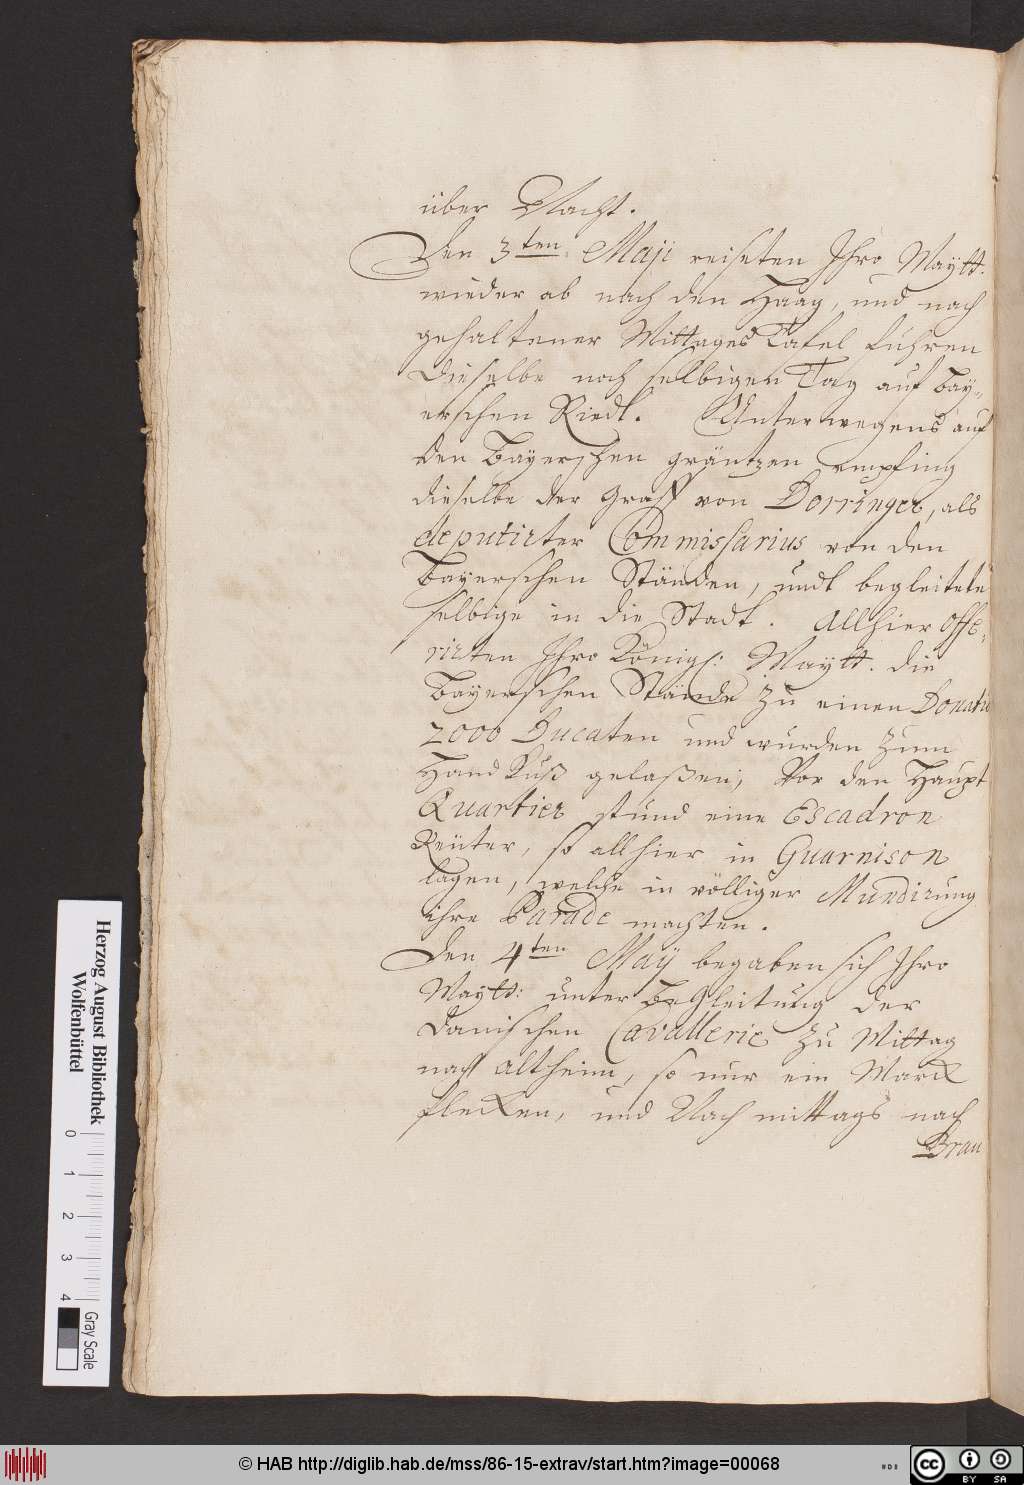 über Nacht.
Den 3ten. Maji reiseten Ihro Maÿtt.
wieder ab nach den Haag, und nach
gehaltener Mittages Tafel fuhren
dieselbe noch selbigen Tag auf Baÿ-
erschen Riedt. Unterwegens auf
den Bayerschen gräntzen empfing
dieselbe der Graff von Dorringer, als
deputirter Commissarius von den
Bayerschen Ständen, undt begleitete
selbige in die Stadt. Allhier offe-
rirten Ihro Königl: Maÿtt. die
Bayerschen Stände zu einen Donativ
2000 Ducaten und wurden zum
Hand Kuß gelaßen; Vor den Haupt
Quartier stund eine Escadron
Reüter, so allhier in Guarnison
lagen, welche in völliger Mundirung
ihre Parade machten.
Den 4ten Maÿ begaben sich Ihro
Maÿtt: unter Begleitung der
Danischen Cavallerie zu Mittag
nach Altheim, so nur ein Marck
flecken, und Nach mittags nach
Brau
Herzog August Bibliothek
Wolfenbüttel
0 1 2 3 4
Gray Scale
© HAB http://diglib.hab.de/mss/86-15-extrav/start.htm?image=00068
cc BY SA